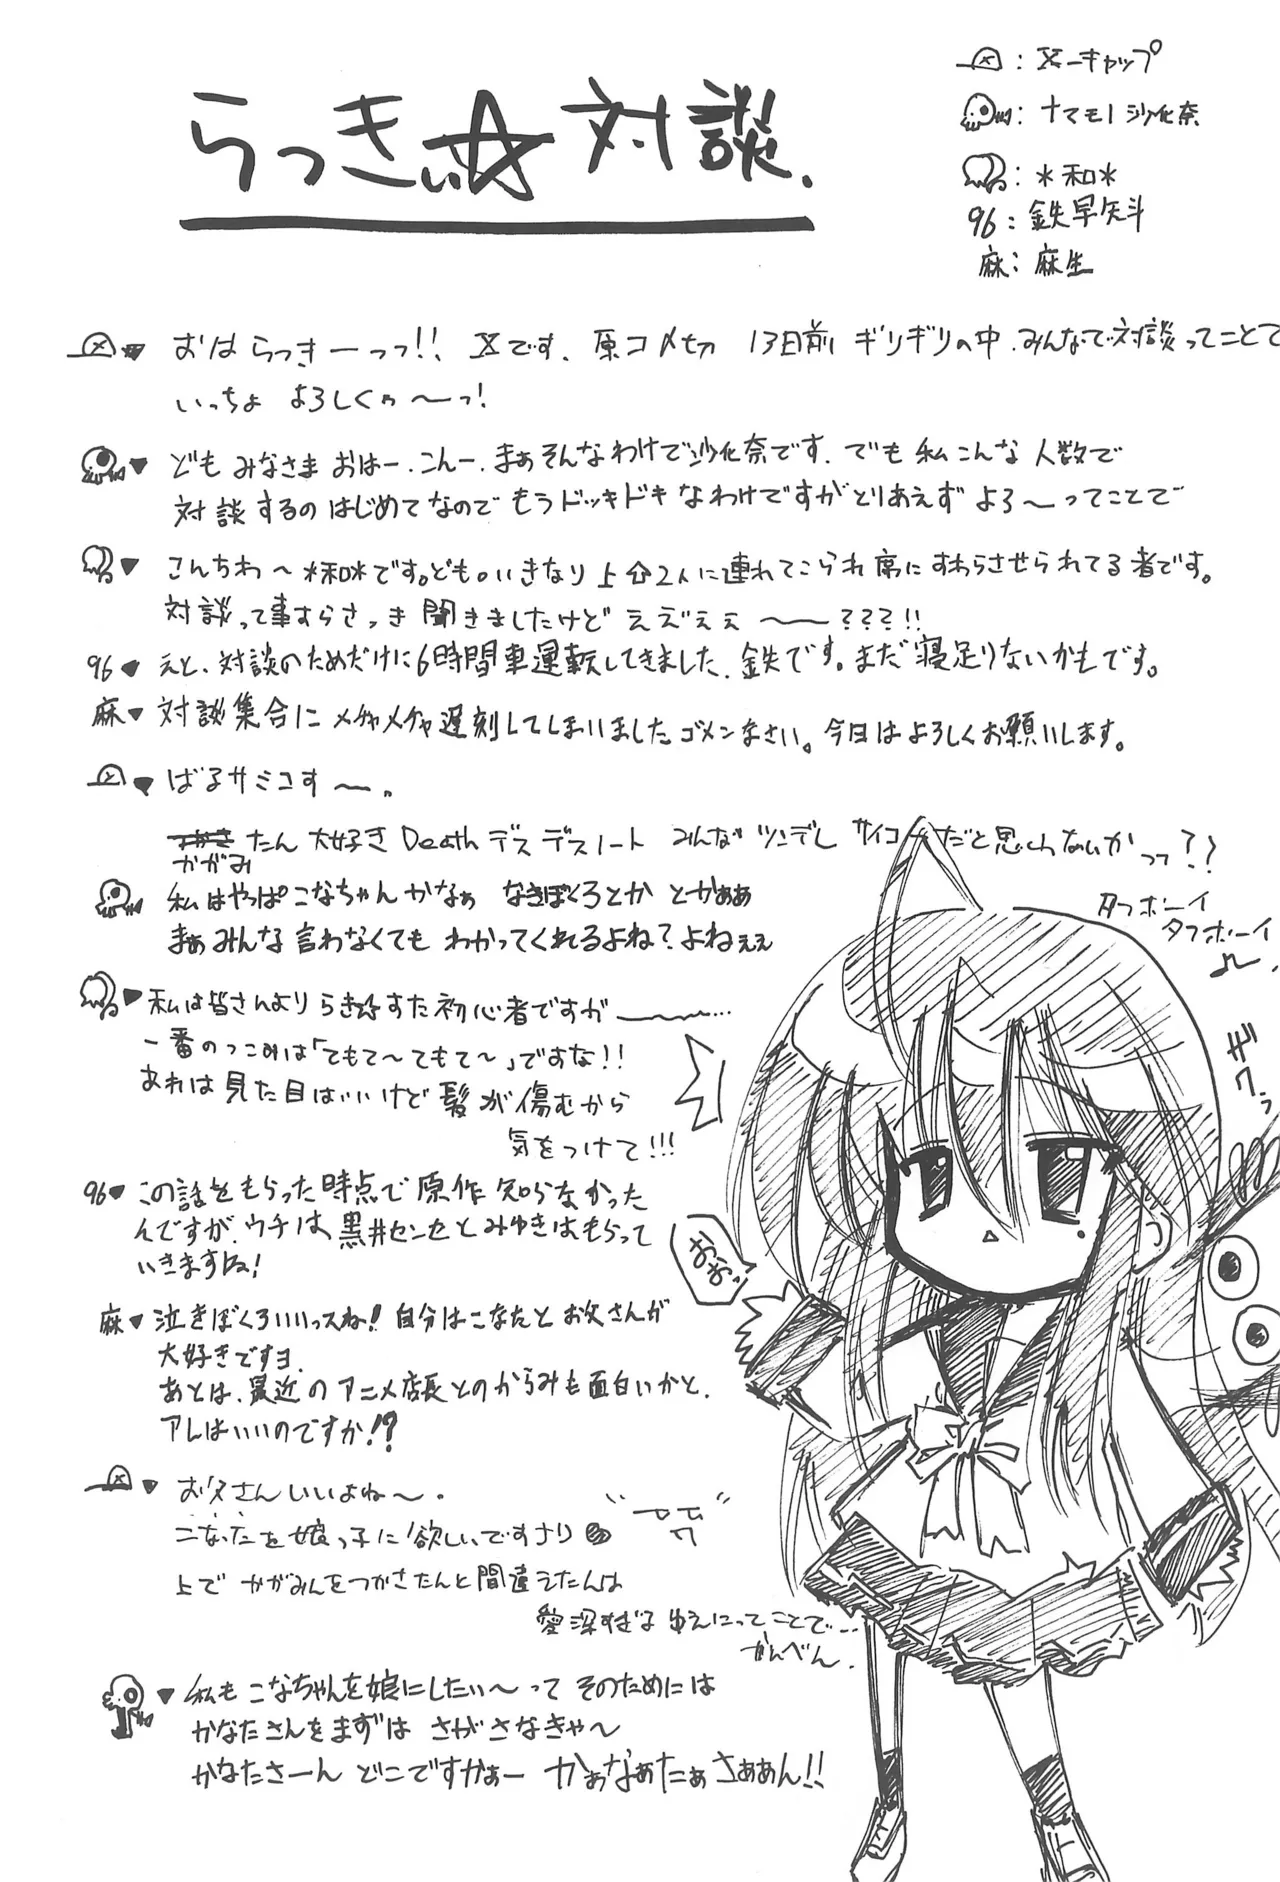 らっきぃ☆対談.
：X-キャップ
：ナマモノ沙化奈
：＊和＊
96：鉄早矢斗
麻：麻生
おはらっきーっっ!!、Xです、原コメ切 13日前 ギリギリの中、みんなで対談ってことで
いっちょ よろしくゥ〜っ!
ども みなさま おはー、こんー、まぁそんなわけで沙化奈です、でも 私こんな 人数で
対談するの はじめてなので もうドッキドキ なわけですがとりあえず よろ〜ってことで
こんちわ〜＊和＊です。ども。いきなり 上の2人に連れてこられ 席に すわらさせられてる者です。
対談って事すらさっき 聞きましたけど ええぇぇ 〜???!!
96♥ えと、対談のためだけに6時間車運転してきました、鉄です。まだ寝足りないかもです。
麻♥ 対談集合に メチャメチャ遅刻してしまいました、ゴメンなさい。今日はよろしくお願いします。
ばるサミコす〜。
かがみ
たん 大好き Death デス デスノート みんな ツンデレ サイコーだと思わないかっっ??
私はやっぱこなちゃんかなぁ なきぼくろとか とかぁぁ
まぁみんな 言わなくても わかってくれるよね?よねぇぇ
私は皆さんより らき☆すた 初心者ですが 〜...
一番のつっこみは「てもて〜てもて〜」ですな!!
あれは見た目はいいけど 髪が傷むから
気をつけて!!!
96♥ この話をもらった時点で 原作 知らなかった
んですが、ウチは、黒井センセとみゆきはもらって
いきますね!
麻♥ 泣きぼくろいいっスね! 自分はこなたと お父さんが
大好きですヨ、
あとは、最近の アニメ店長とのからみも 面白いかと、
アレはいいのですか!?
お父さんいいよね〜。
こなったを 娘っ子に 欲しいですナリ
上で かがみんをつかさたんと間違えたんは
愛深すぎる ゆえにってことで...
かんべん.
私も こなちゃんを娘にしたいぃ〜って そのためには
かなたさんを まずは さがさなきゃ〜
かなたさーん どこですかぁー かぁなぁたぁさぁぁん!!
タフボーイ
タフボーイ
♪
モワっ
おおっ